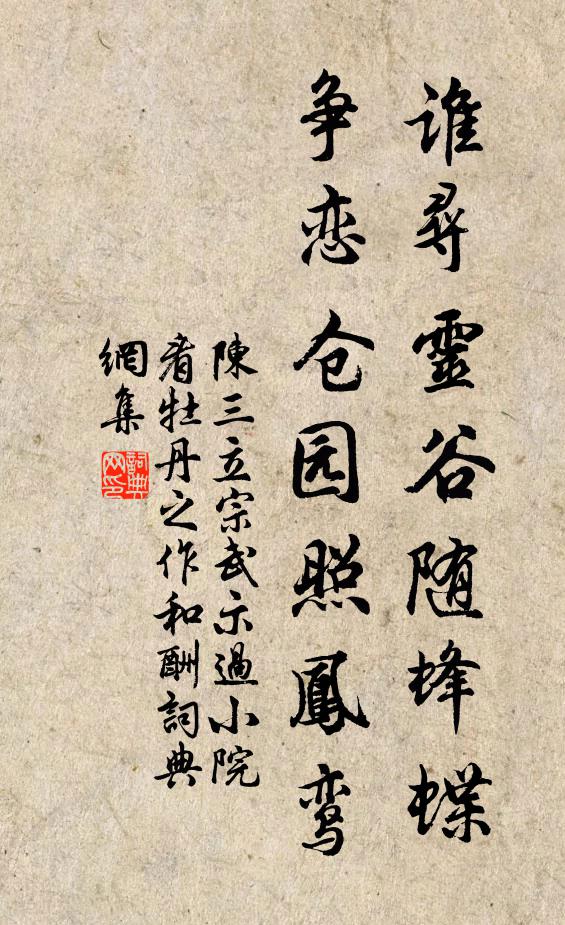 谁尋靈谷随蜂蝶
争恋仓园照鳳鸾
陳三立宗武示過小院
看牡丹之作和酬詞典
網集
詞典網印